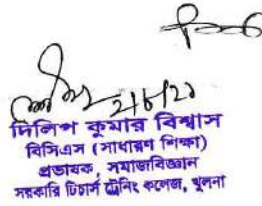 ২/৮/২১
দিলিপ কুমার বিশ্বাস
বিসিএস (সাধারণ শিক্ষা)
প্রভাষক, সমাজবিজ্ঞান
সরকারি টিচার্স ট্রেনিং কলেজ, খুলনা